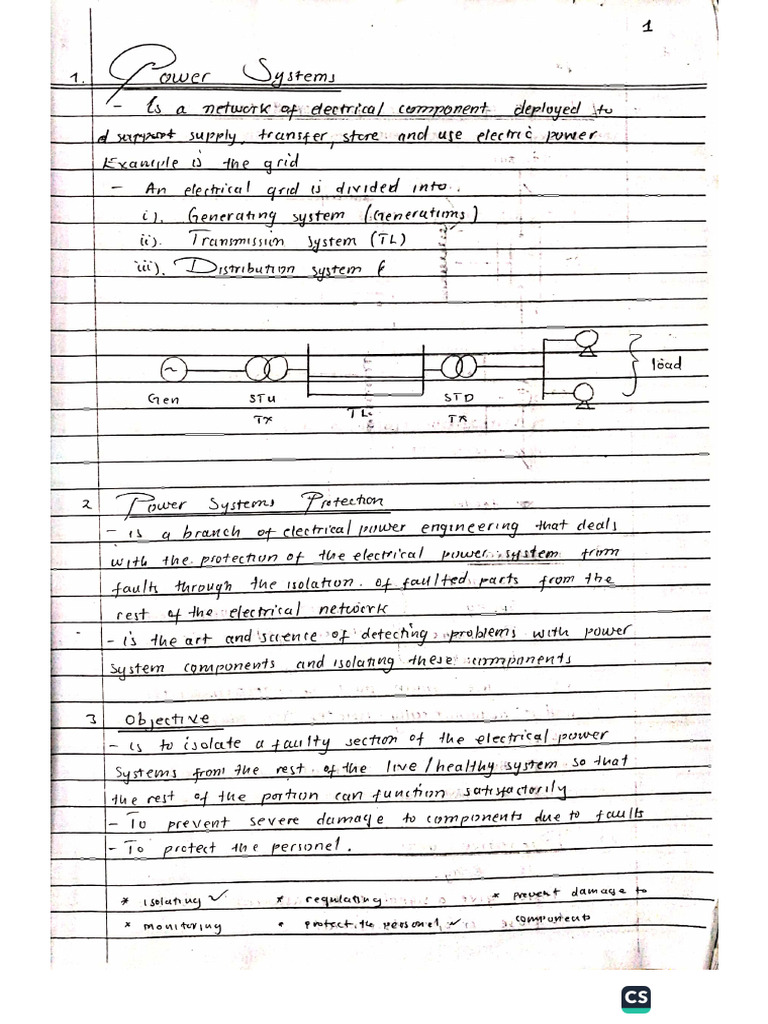 1
1. Power Systems
- Is a network of electrical component deployed to
supply, transfer, store and use electric power
Example is the grid
- An electrical grid is divided into.
i). Generating system (Generations)
ii). Transmission system (TL)
iii). Distribution system (
Gen STU TX TL STD TX load
2 Power Systems Protection
- is a branch of electrical power engineering that deals
with the protection of the electrical power system from
faults through the isolation of faulted parts from the
rest of the electrical network
- is the art and science of detecting problems with power
system components and isolating these components
3 Objective
- is to isolate a faulty section of the electrical power
systems from the rest of the live/healthy system so that
the rest of the portion can function satisfactorily
- To prevent severe damage to components due to faults
- To protect the personel.
* isolating ✓ * regulating * prevent damage to
* monitoring * protect the personel ✓ components
CS